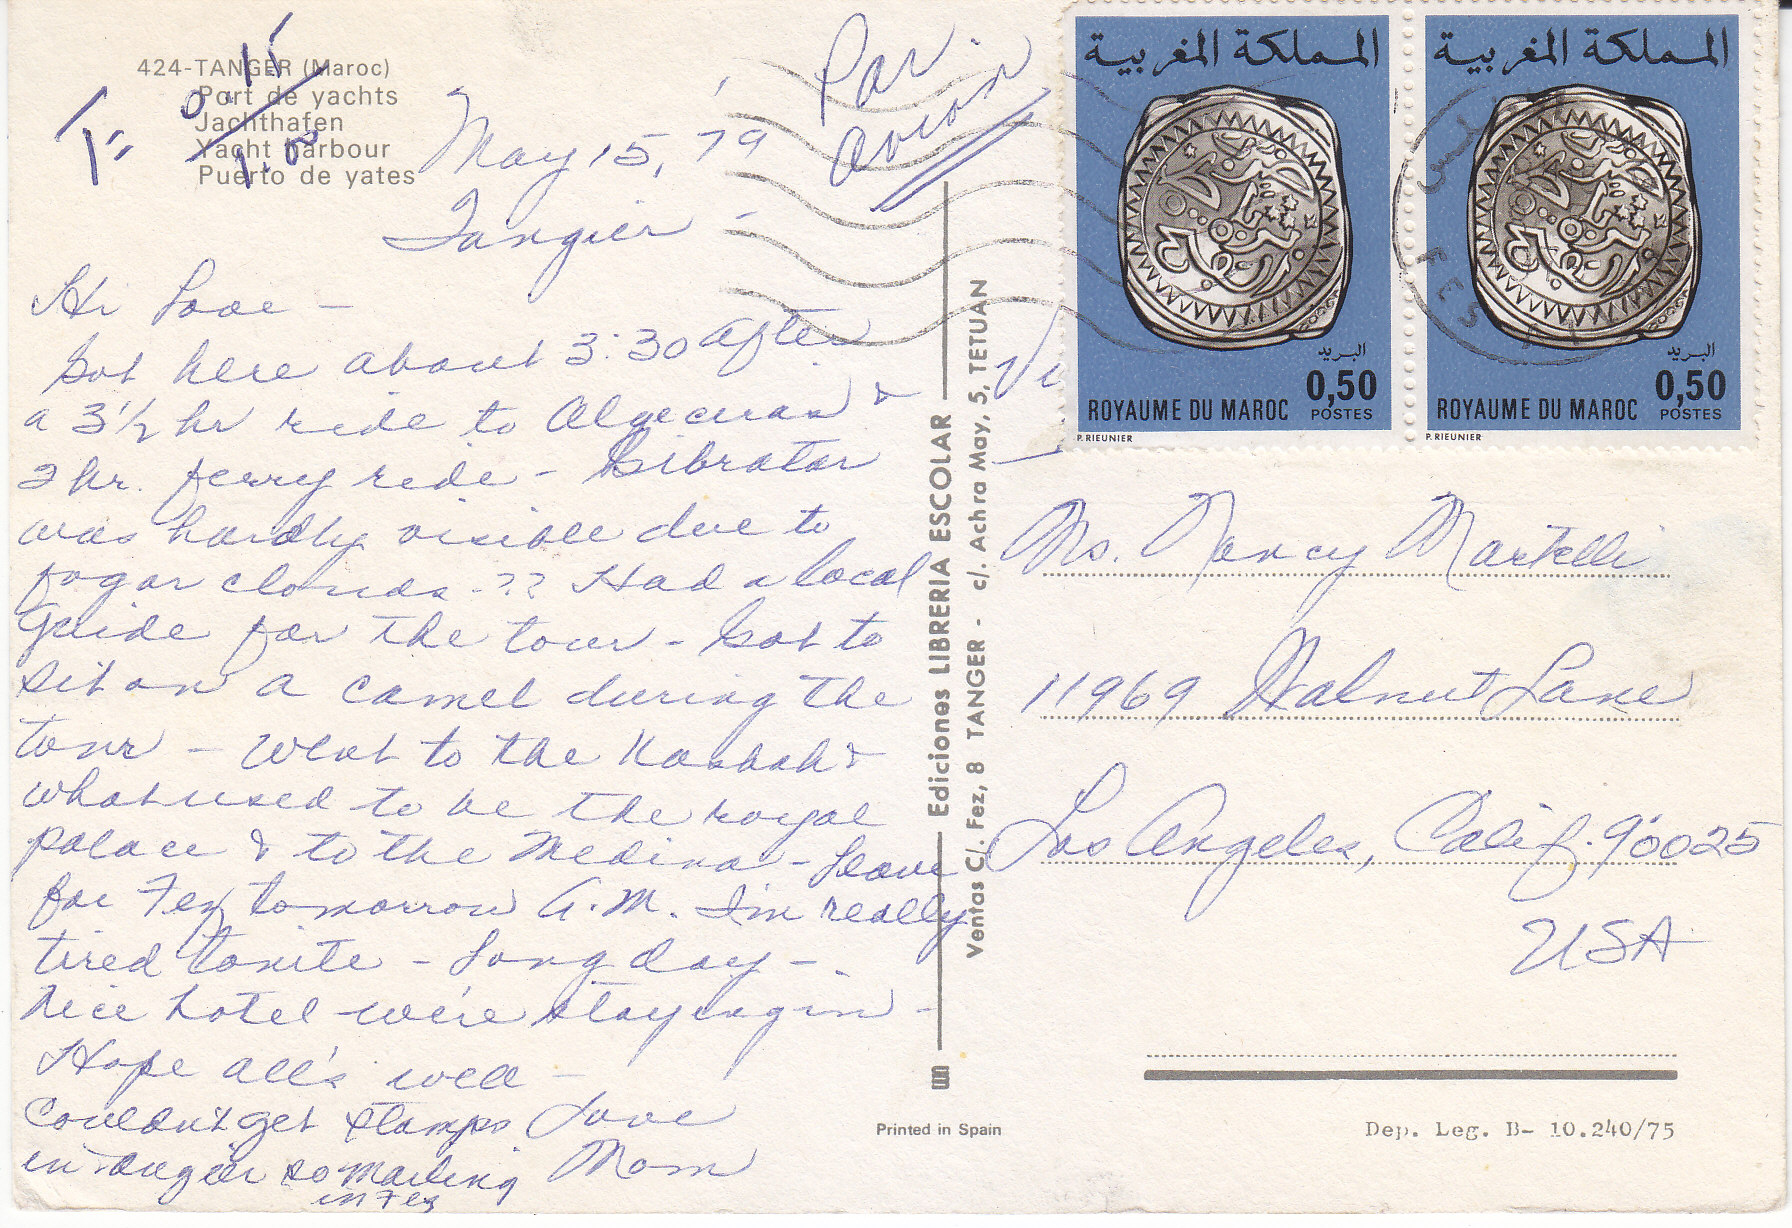 424-TANGER (Maroc)
Port de yachts
Jachthafen
Yacht harbour
Puerto de yates
T
0.15
1.00
Par
avion
May 15, '79
Tangier -
Hi Love -
Got here about 3:30 after
a 3 1/2 hr ride to Algeciras &
2 hr. ferry ride - Gibraltar
was hardly visible due to
fog or clouds - ?? Had a local
Guide for the tour - Got to
sit on a camel during the
tour - Went to the Kasbah &
what used to be the royal
palace & to the Medina - Leave
for Fez tomorrow A.M. I'm really
tired tonite - Long day -
Nice hotel we're staying in -
Hope all's well -
Love
Mom
Couldn't get stamps
in Tangier so mailing
in Fez
Ediciones LIBRERIA ESCOLAR
Ventas C/. Fez, 8 TANGER - c/. Achra May, 5, TETUAN
Printed in Spain
المملكة المغربية
البريد
0,50
POSTES
ROYAUME DU MAROC
P. RIEUNIER
المملكة المغربية
البريد
0,50
POSTES
ROYAUME DU MAROC
P. RIEUNIER
FES
Ms. Nancy Martelli
11969 Walnut Lane
Los Angeles, Calif. 90025
USA
Dep. Leg. B- 10.240/75